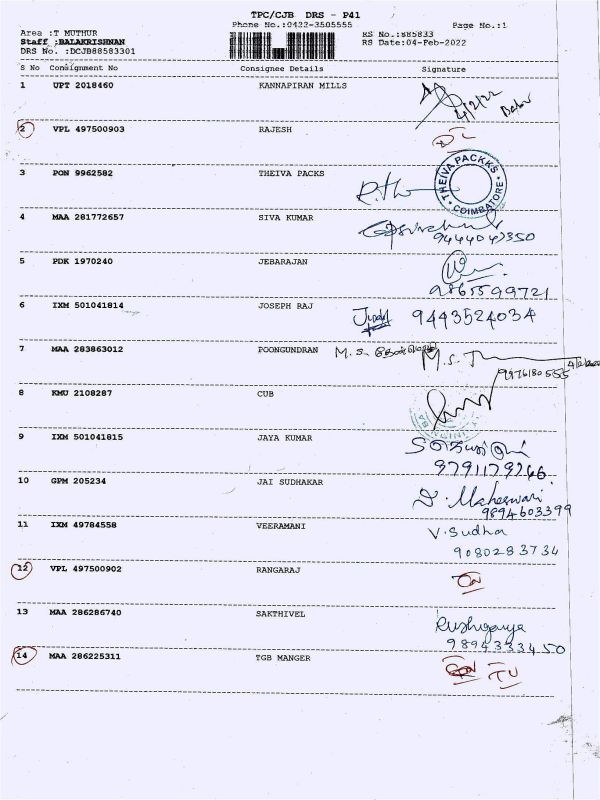 TPC/CJB DRS - P41
Phone No.:0422-3505555 Page No.:1
Area :T MUTHUR RS No.:885833
Staff :BALAKRISHNAN RS Date:04-Feb-2022
DRS No. :DCJB88583301
S No Consignment No Consignee Details Signature
1 UPT 2018460 KANNAPIRAN MILLS 4/2/22
2 VPL 497500903 RAJESH
3 PON 9962582 THEIVA PACKS THEIVA PACKKS COIMBATORE
4 MAA 281772657 SIVA KUMAR
9444047350
5 PDK 1970240 JEBARAJAN
9865599721
6 IXM 501041814 JOSEPH RAJ 9443524034
7 MAA 283863012 POONGUNDRAN M.S. M.S.
9976180555
8 KMU 2108287 CUB
9 IXM 501041815 JAYA KUMAR
9791179266
10 GPM 205234 JAI SUDHAKAR D. Maheswari
9894603399
11 IXM 49784558 VEERAMANI V. Sudha
9080283734
12 VPL 497500902 RANGARAJ
13 MAA 286286740 SAKTHIVEL
9894333450
14 MAA 286225311 TGB MANGER